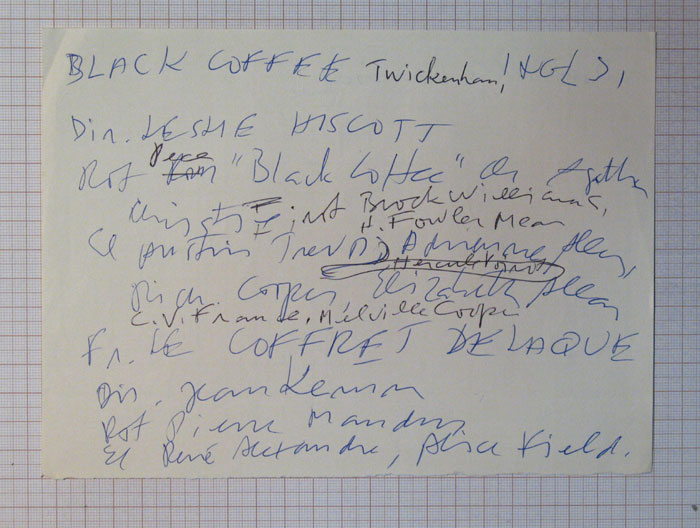 BLACK COFFEE Twickenham, INGL 31
Din. LESLIE HISCOTT
Rof Pece "Black Coffee" de Agatha
Christie Brock Williams,
H. Fowler Mear
El Austin Trevor, Adrianne Allen,
(Hercule Poirot)
Rich. Cooper, Elizabeth Allan
C.V. France, Melville Cooper
Fr. LE COFFRET DE LAQUE
Din. Jean Kemm
Rof Pierre Maudru
El René Alexandre, Alice Field.